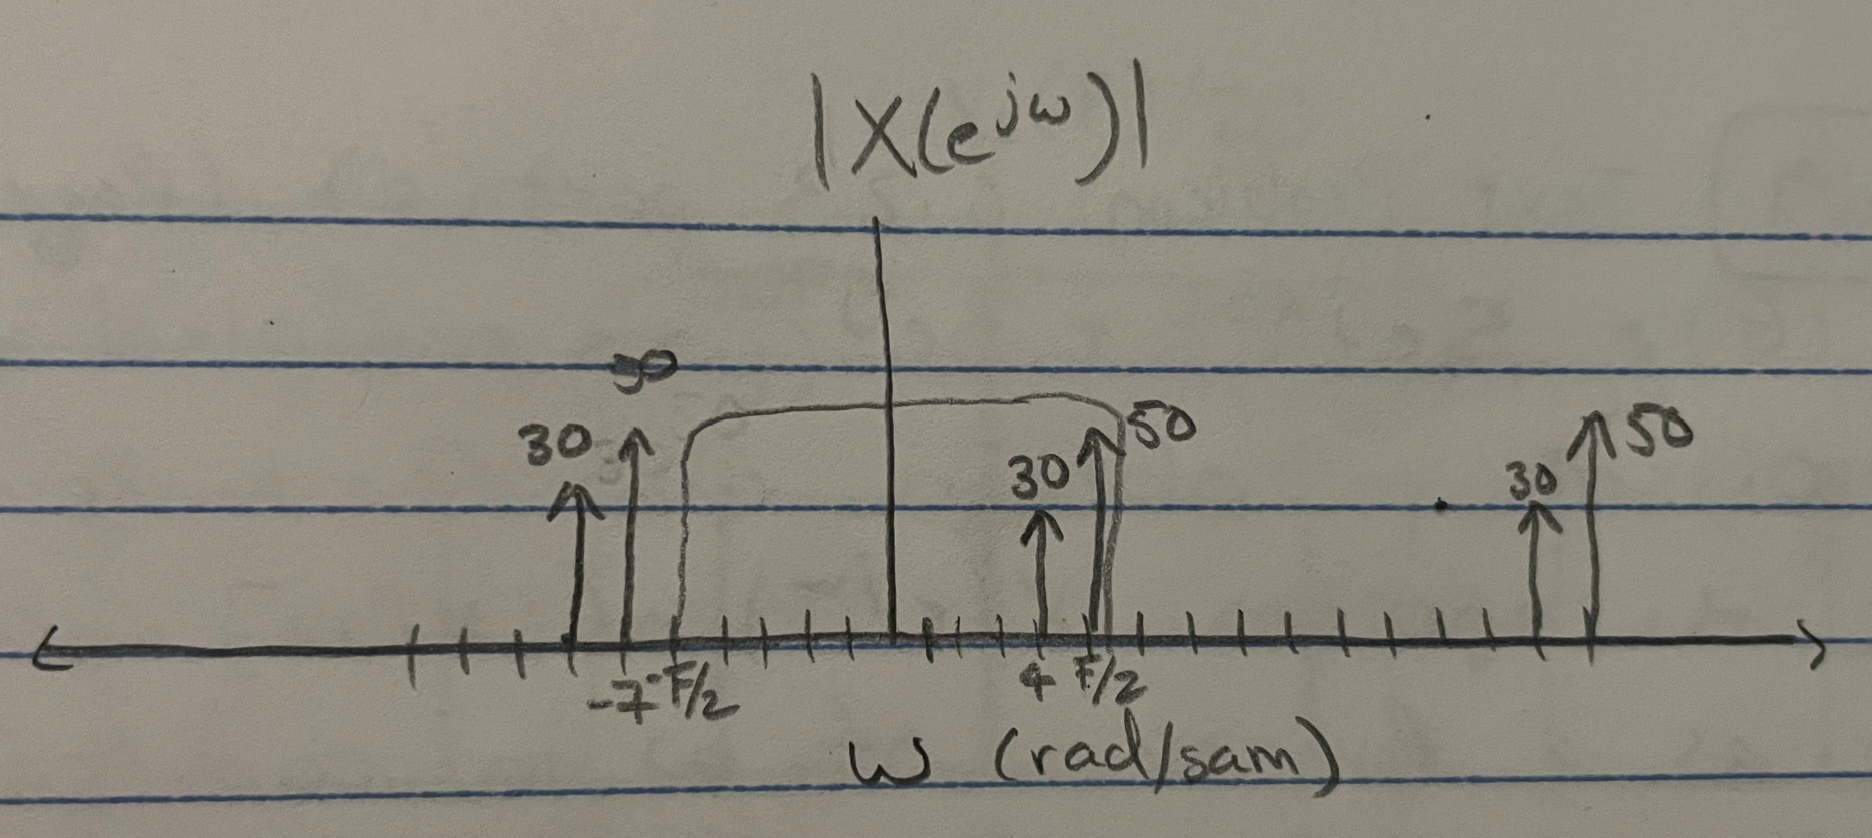 |X(e^jω)|
30
50
30
50
30
50
-7 -F/2 4 F/2
ω (rad/sam)